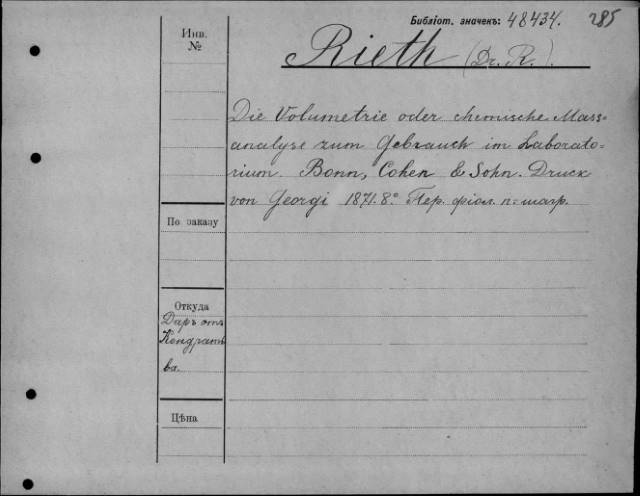 Библіот. значекъ: 48434. 285
Инв.
№
Rieth (Dr. R.).
Die Volumetrie oder chemische Mass=
analyse zum Gebrauch im Laborato=
rium. Bonn, Cohen & Sohn. Druck
von Georgi 1871. 8º Пер. фіол. п=шагр.
По заказу
Откуда
Даръ отъ
Кондратье
ва.
Цѣна